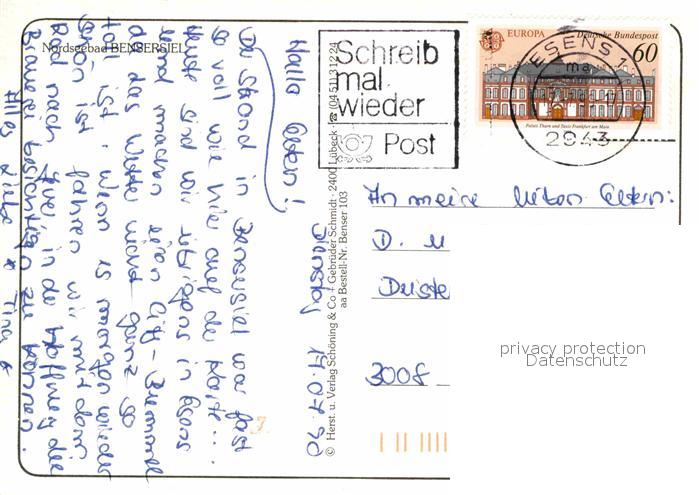 Nordseebad BENSERSIEL
Hallo Eltern!
Dienstag 17.07.90
Der Strand in Bensersiel war fast
so voll wie hier auf der Karte...
Heute sind wir übrigens in Esens
und machen einen City-Bummel
da das Wetter nicht ganz so
toll ist. Wenn es morgen wieder
schön ist fahren wir mit dem
Rad nach Jever in der Hoffnung die
Brauerei besichtigen zu können.
Alles Liebe Tina
© Herst. u. Verlag Schöning & Co + Gebrüder Schmidt · 2400 Lübeck · ☎ (04 51) 3 12 24
aa Bestell-Nr. Benser 103
Schreib
mal
wieder
Post
EUROPA Deutsche Bundespost
60
Palais Thurn und Taxis Frankfurt am Main
ESENS 1
ma
2943
An meine lieben Eltern:
D. u
3008
privacy protection
Datenschutz